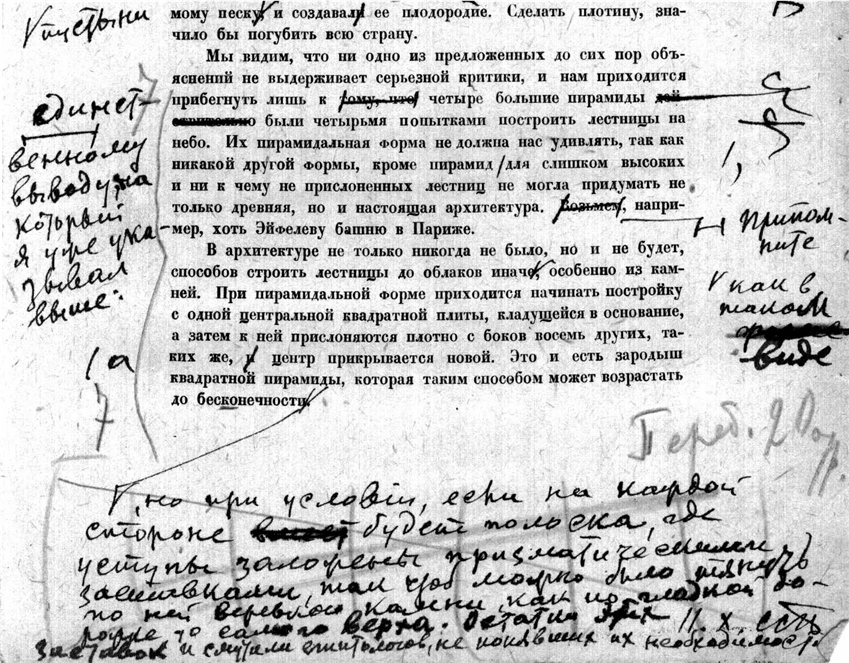 мому песку, и создавали ее плодородие. Сделать плотину, зна-
чило бы погубить всю страну.
Мы видим, что ни одно из предложенных до сих пор объ-
яснений не выдерживает серьезной критики, и нам приходится
прибегнуть лишь к тому, что четыре большие пирамиды дей-
ствительно были четырьмя попытками построить лестницы на
небо. Их пирамидальная форма не должна нас удивлять, так как
никакой другой формы, кроме пирамид для слишком высоких
и ни к чему не прислоненных лестниц не могла придумать не
только древняя, но и настоящая архитектура. Возьмем, напри-
мер, хоть Эйфелеву башню в Париже.
В архитектуре не только никогда не было, но и не будет,
способов строить лестницы до облаков иначе, особенно из кам-
ней. При пирамидальной форме приходится начинать постройку
с одной центральной квадратной плиты, кладущейся в основание,
а затем к ней прислоняются плотно с боков восемь других, та-
ких же, и центр прикрывается новой. Это и есть зародыш
квадратной пирамиды, которая таким способом может возрастать
до бесконечности.
пустыни
единст-
венному
выводу, на
который
я уже ука-
зывал
выше:
а
Припом-
ните
как в
таком
виде
, но при условии, если на каждой
стороне будет полоска, где
уступы заложены призматическими
заставками, так чтоб можно было тянуть
по ней веревкой камни, как по гладкой до-
роге до самого верха. Остатки этих
заставок и смутили египтологов, не понявших их необходимости.